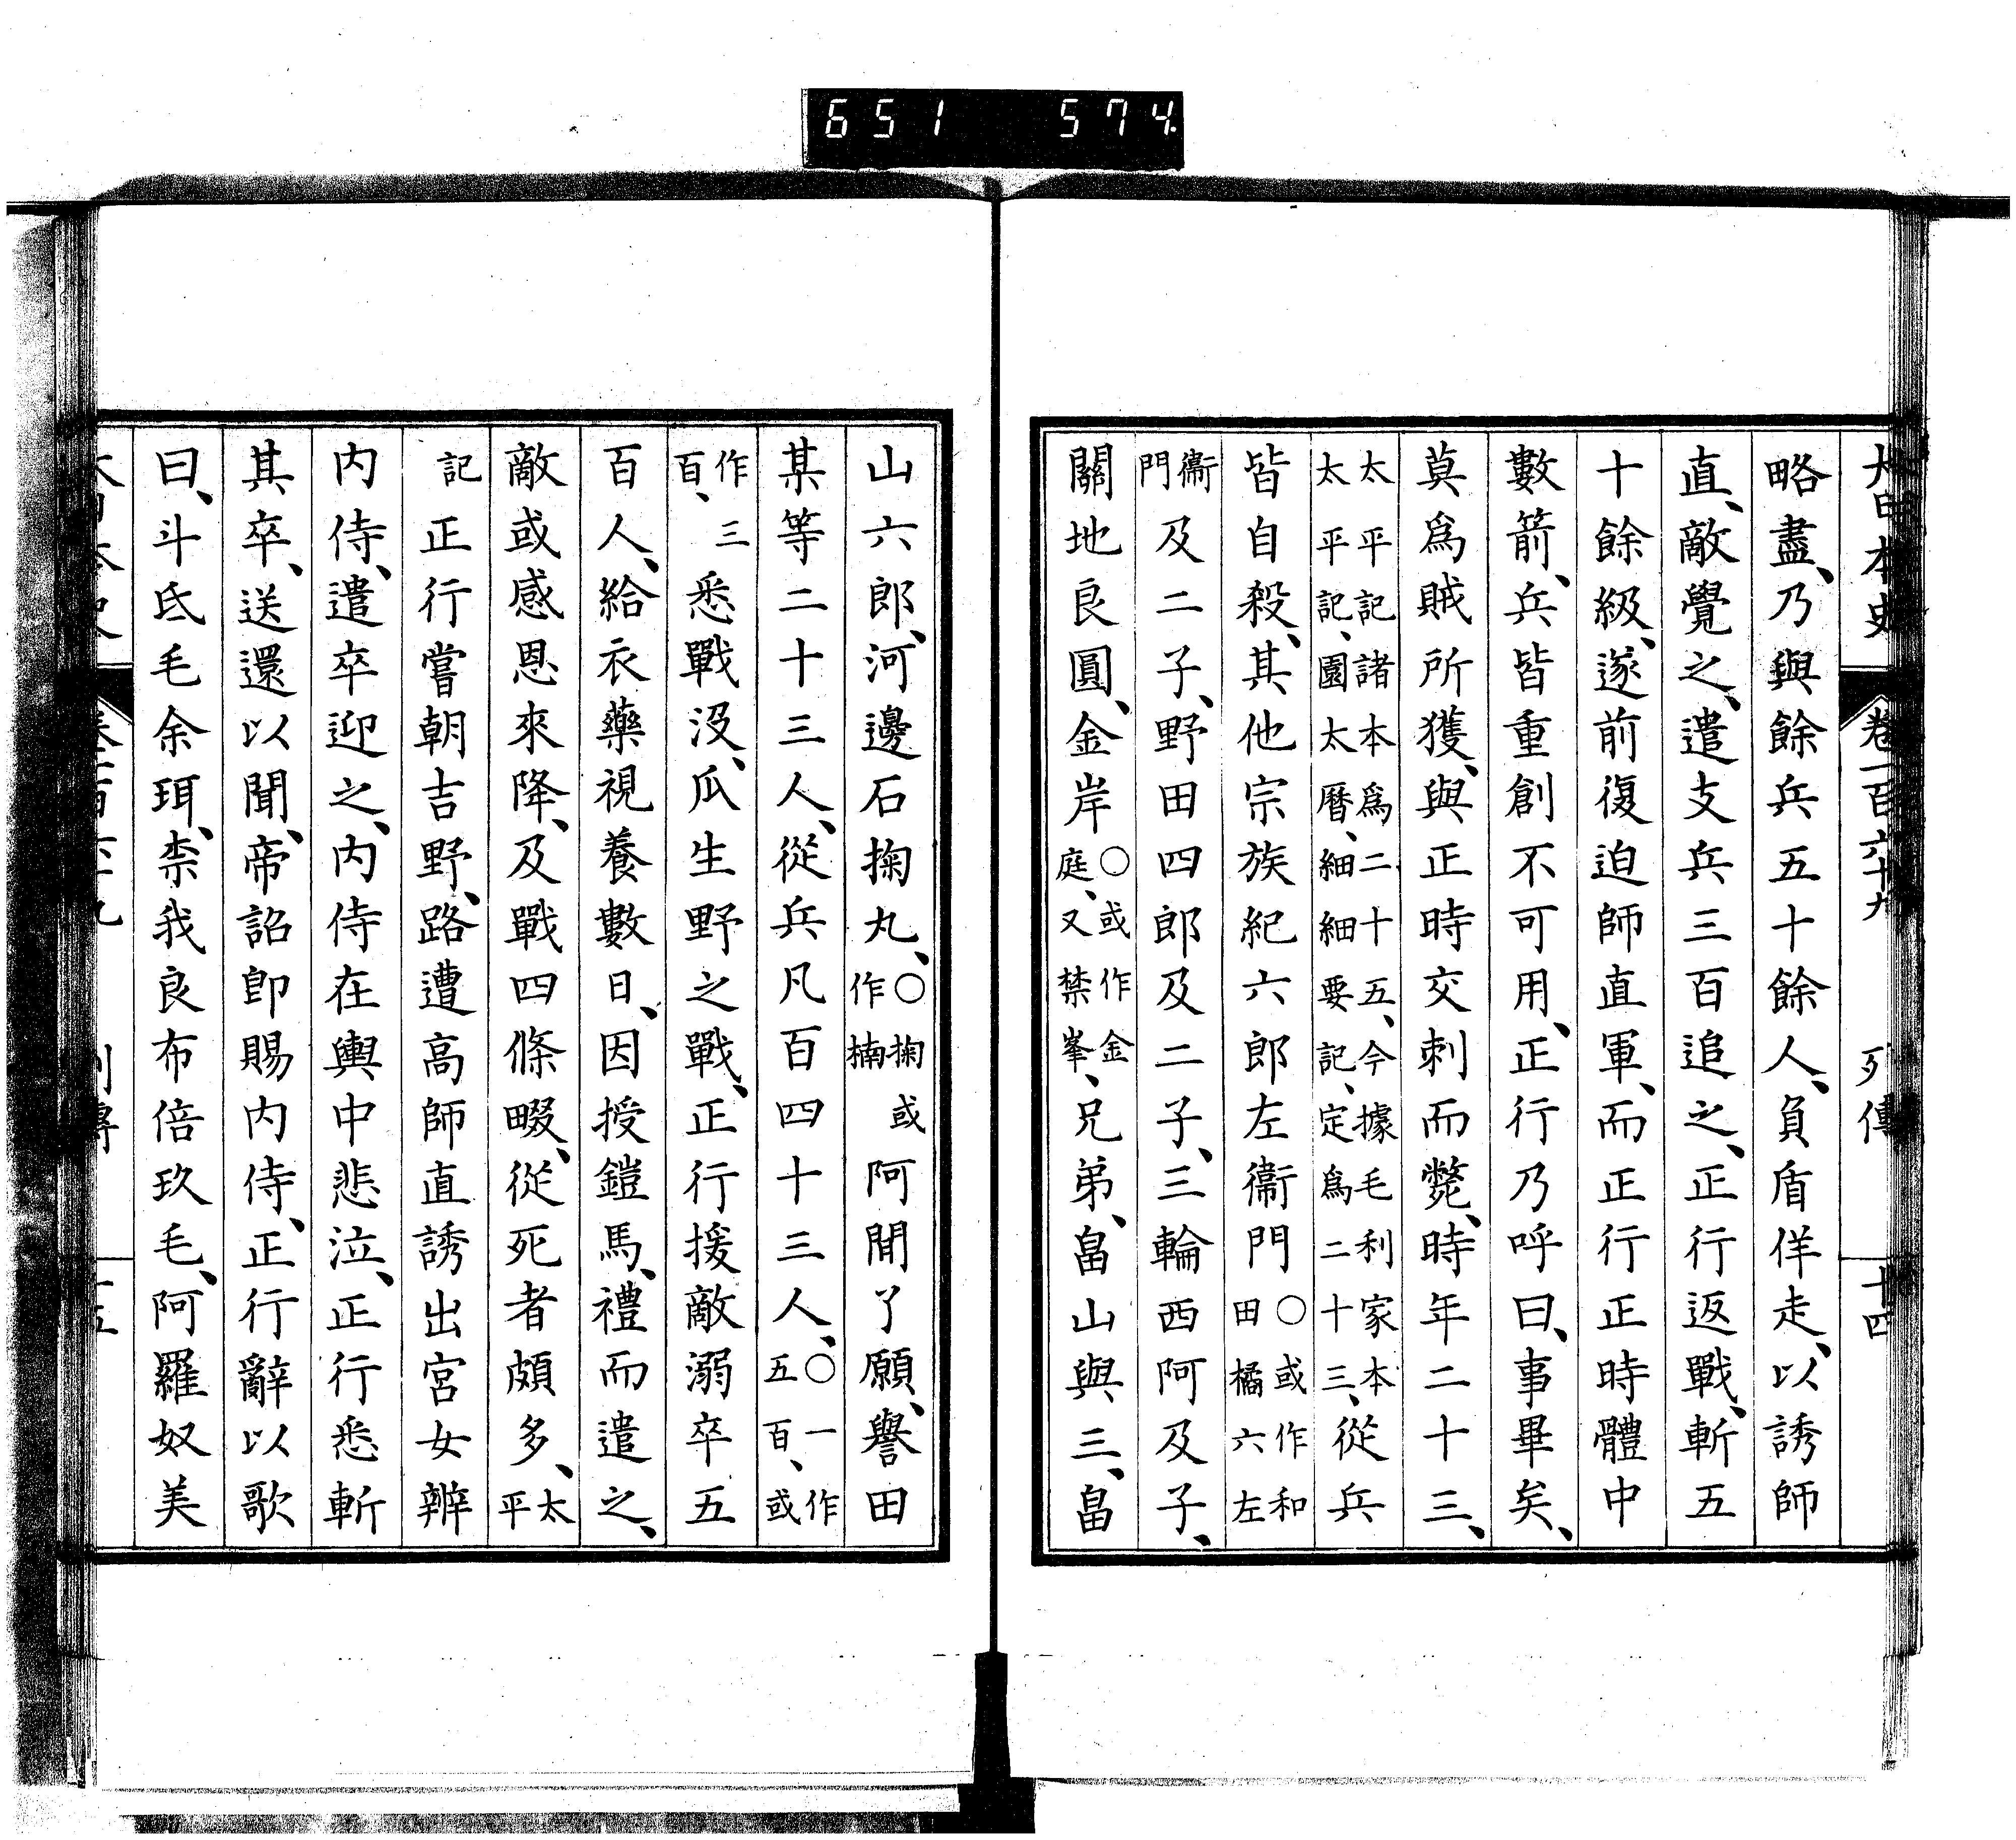 651 574.
大日本史 卷一百六十九 列傳 十四
略盡、乃與餘兵五十餘人、負盾佯走、以誘師
直、敵覺之、遣支兵三百追之、正行返戰、斬五
十餘級、遂前復迫師直軍、而正行正時體中
數箭、兵皆重創不可用、正行乃呼曰、事畢矣、
莫爲賊所獲、與正時交刺而斃、時年二十三、
太平記諸本爲二十五、今據毛利家本
太平記、園太曆、細細要記、定爲二十三、從兵
皆自殺、其他宗族紀六郎左衞門○或作和
田橘六左
衞
門及二子、野田四郎及二子、三輪西阿及子、
關地良圓、金岸○或作金
庭、又禁峯、兄弟、畠山與三、畠
山六郎、河邊石掬丸、○掬或
作楠阿閒了願、譽田
某等二十三人、從兵凡百四十三人、○一作
五百、或
作三
百、悉戰沒、瓜生野之戰、正行援敵溺卒五
百人、給衣藥視養數日、因授鎧馬、禮而遣之、
敵或感恩來降、及戰四條畷、從死者頗多、太
平
記正行嘗朝吉野、路遭高師直誘出宮女辨
内侍、遣卒迎之、内侍在輿中悲泣、正行悉斬
其卒、送還以聞、帝詔卽賜内侍、正行辭以歌
曰、斗氐毛余珥、柰我良布倍玖毛、阿羅奴美